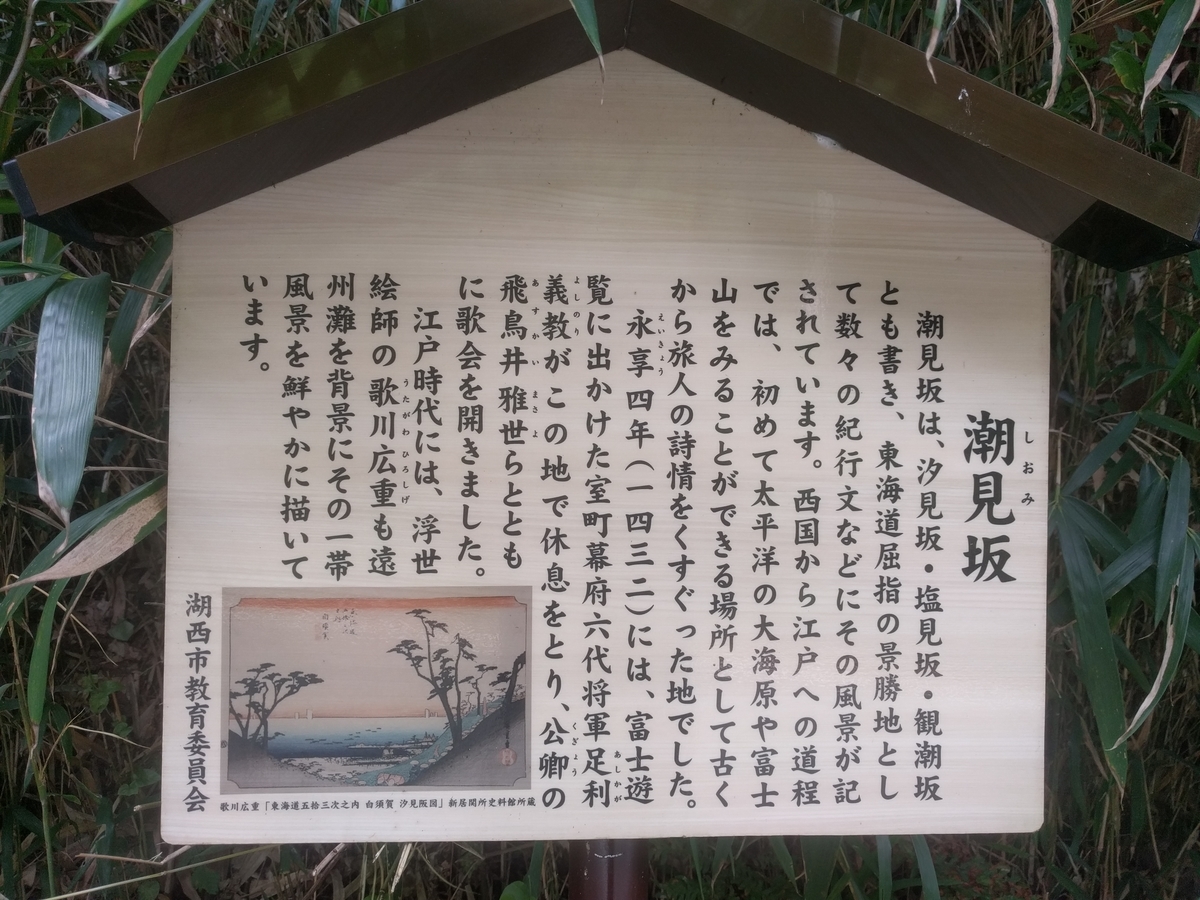 潮見坂
しおみ
潮見坂は、汐見坂・塩見坂・観潮坂
とも書き、東海道屈指の景勝地とし
て数々の紀行文などにその風景が記
されています。西国から江戸への道程
では、初めて太平洋の大海原や富士
山をみることができる場所として古く
から旅人の詩情をくすぐった地でした。
永享四年(一四三二)には、富士遊
えいきょう
覧に出かけた室町幕府六代将軍足利
あしかが
義教がこの地で休息をとり、公卿の
よしのり
くぎょう
飛鳥井雅世らととも
あすかい まさよ
に歌会を開きました。
江戸時代には、浮世
絵師の歌川広重も遠
うたがわひろしげ
州灘を背景にその一帯
風景を鮮やかに描いて
います。
歌川広重「東海道五拾三次之内 白須賀 汐見阪図」新居関所史料館所蔵
湖西市教育委員会